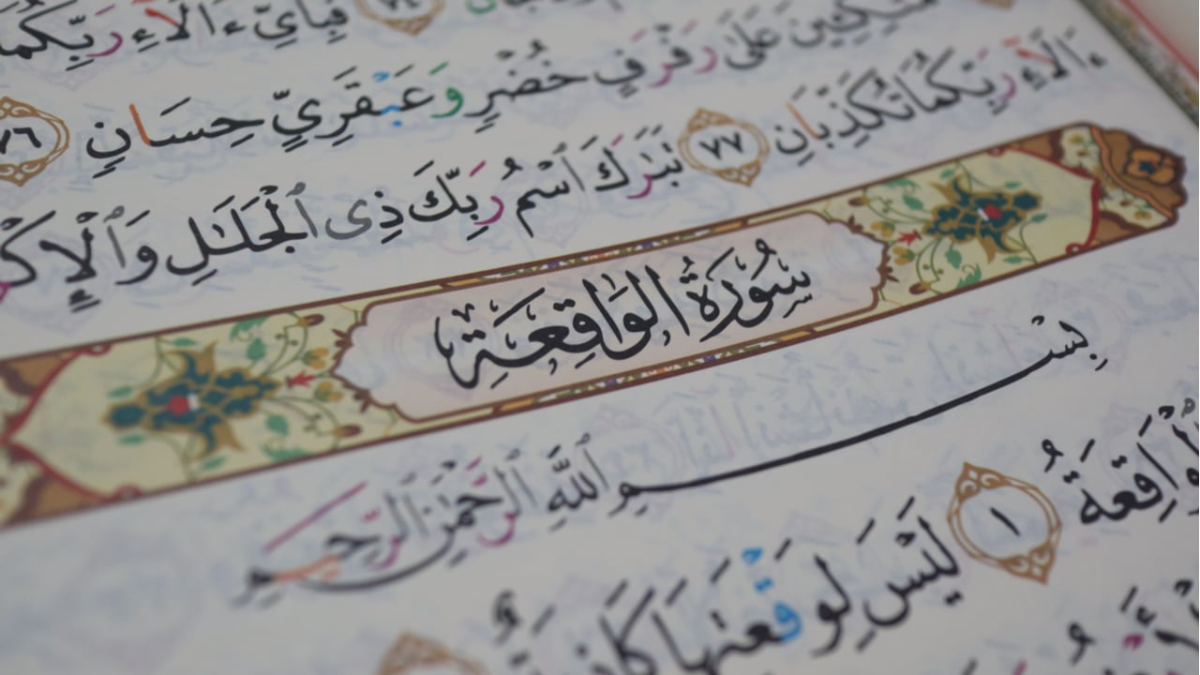 فَبِأَىِّ ءَالَآءِ رَبِّكُمَا
مُتَّكِـِٔينَ عَلَىٰ رَفْرَفٍ خُضْرٍ وَعَبْقَرِىٍّ حِسَانٍ ٧٦
ءَالَآءِ رَبِّكُمَا تُكَذِّبَانِ ٧٧ تَبَٰرَكَ ٱسْمُ رَبِّكَ ذِى ٱلْجَلَٰلِ وَٱلْإِكْ
سُورَةُ الْوَاقِعَةِ
بِسْمِ ٱللَّهِ ٱلرَّحْمَٰنِ ٱلرَّحِيمِ
ٱلْوَاقِعَةُ ١ لَيْسَ لِوَقْعَتِهَا كَاذِبَةٌ